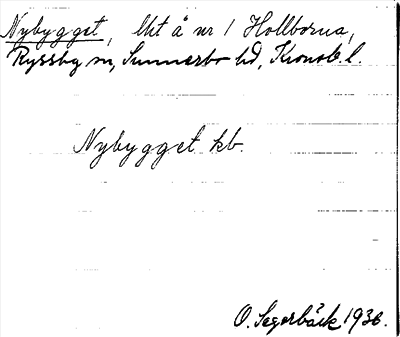 Nybygget, lht å nr 1 Hallborna,
Ryssby sn, Sunnerbo hd, Kronob. l.
Nybygget kb.
O. Segerbäck 1936.